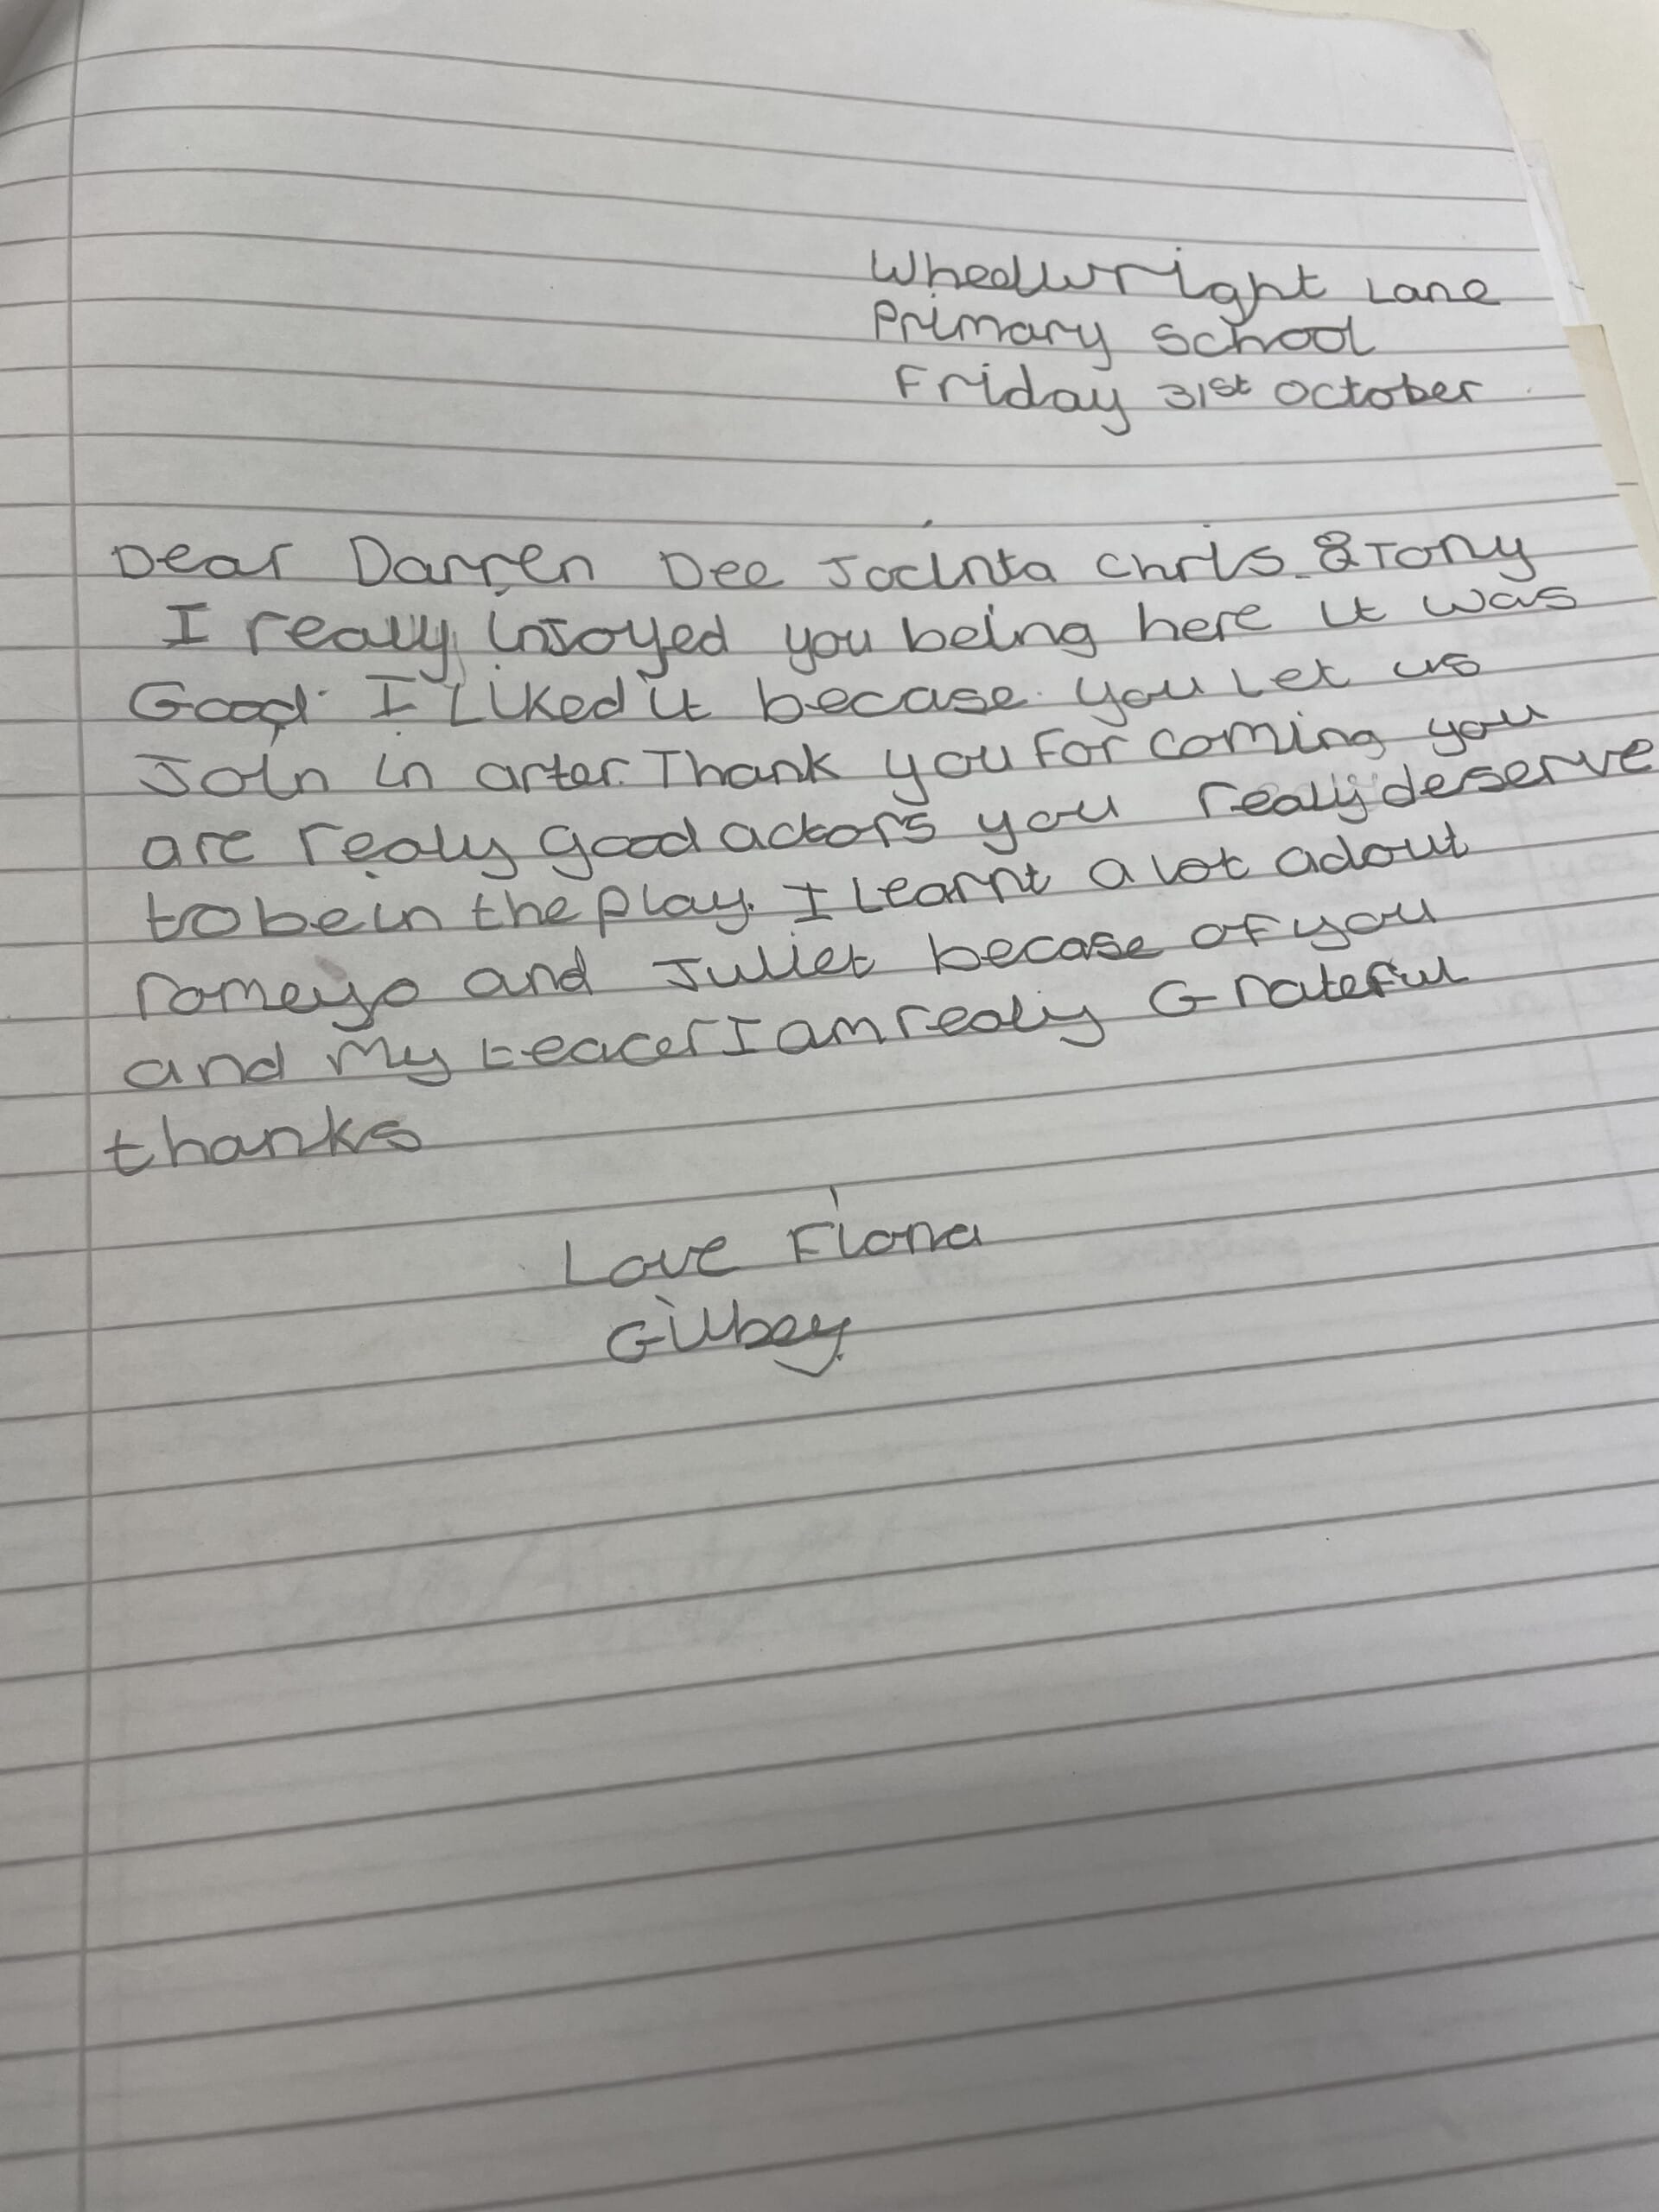 Wheelwright Lane
Primary School
Friday 31st October
Dear Darren Dee Jacinta Chris & Tony
I really injoyed you being here it was
Good. I Liked it becase you Let us
Join in arter. Thank you For coming you
are realy good actors you realy deserve
to be in the play. I Learnt a lot adout
romeyo and Juliet becase of you
and My teacer I am realy Grateful
thanks
Love Fiona
Gilbey.